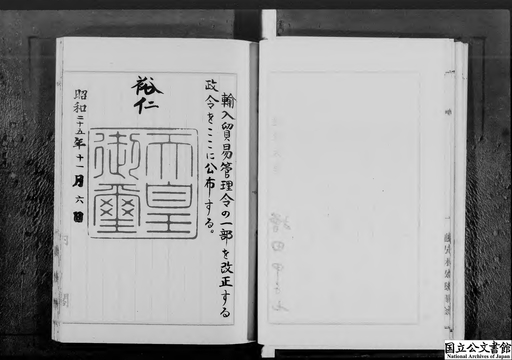 輸入貿易管理令の一部を改正する
政令をここに公布する。
裕仁
昭和二十五年十一月六日
天皇
御璽
国立公文書館
National Archives of Japan